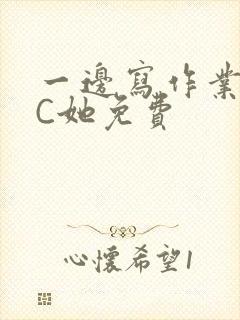 一邊寫作業
C她免費
心懷希望1